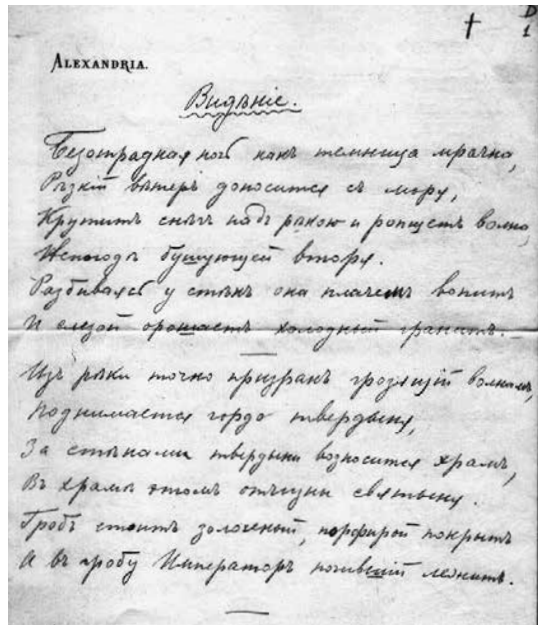 D
1
ALEXANDRIA.
Видѣніе.
Безотрадная ночь какъ темница мрачна,
Рѣзкій вѣтеръ доносится съ моря,
Крутитъ снѣгъ надъ рѣкою и ропщетъ волна,
Непогодѣ бушующей вторя.
Разбиваясь у стѣнъ она плачетъ вопитъ
И слезой орошаетъ холодный гранитъ.
Изъ рѣки точно призракъ грозящій волнамъ,
Поднимается гордо твердыня,
За стѣнами твердыни возносится храмъ,
Въ храмѣ этомъ отчизны святыня.
Гробъ стоитъ золоченый, порфирой покрытъ
А въ гробу Императоръ почившій лежитъ.